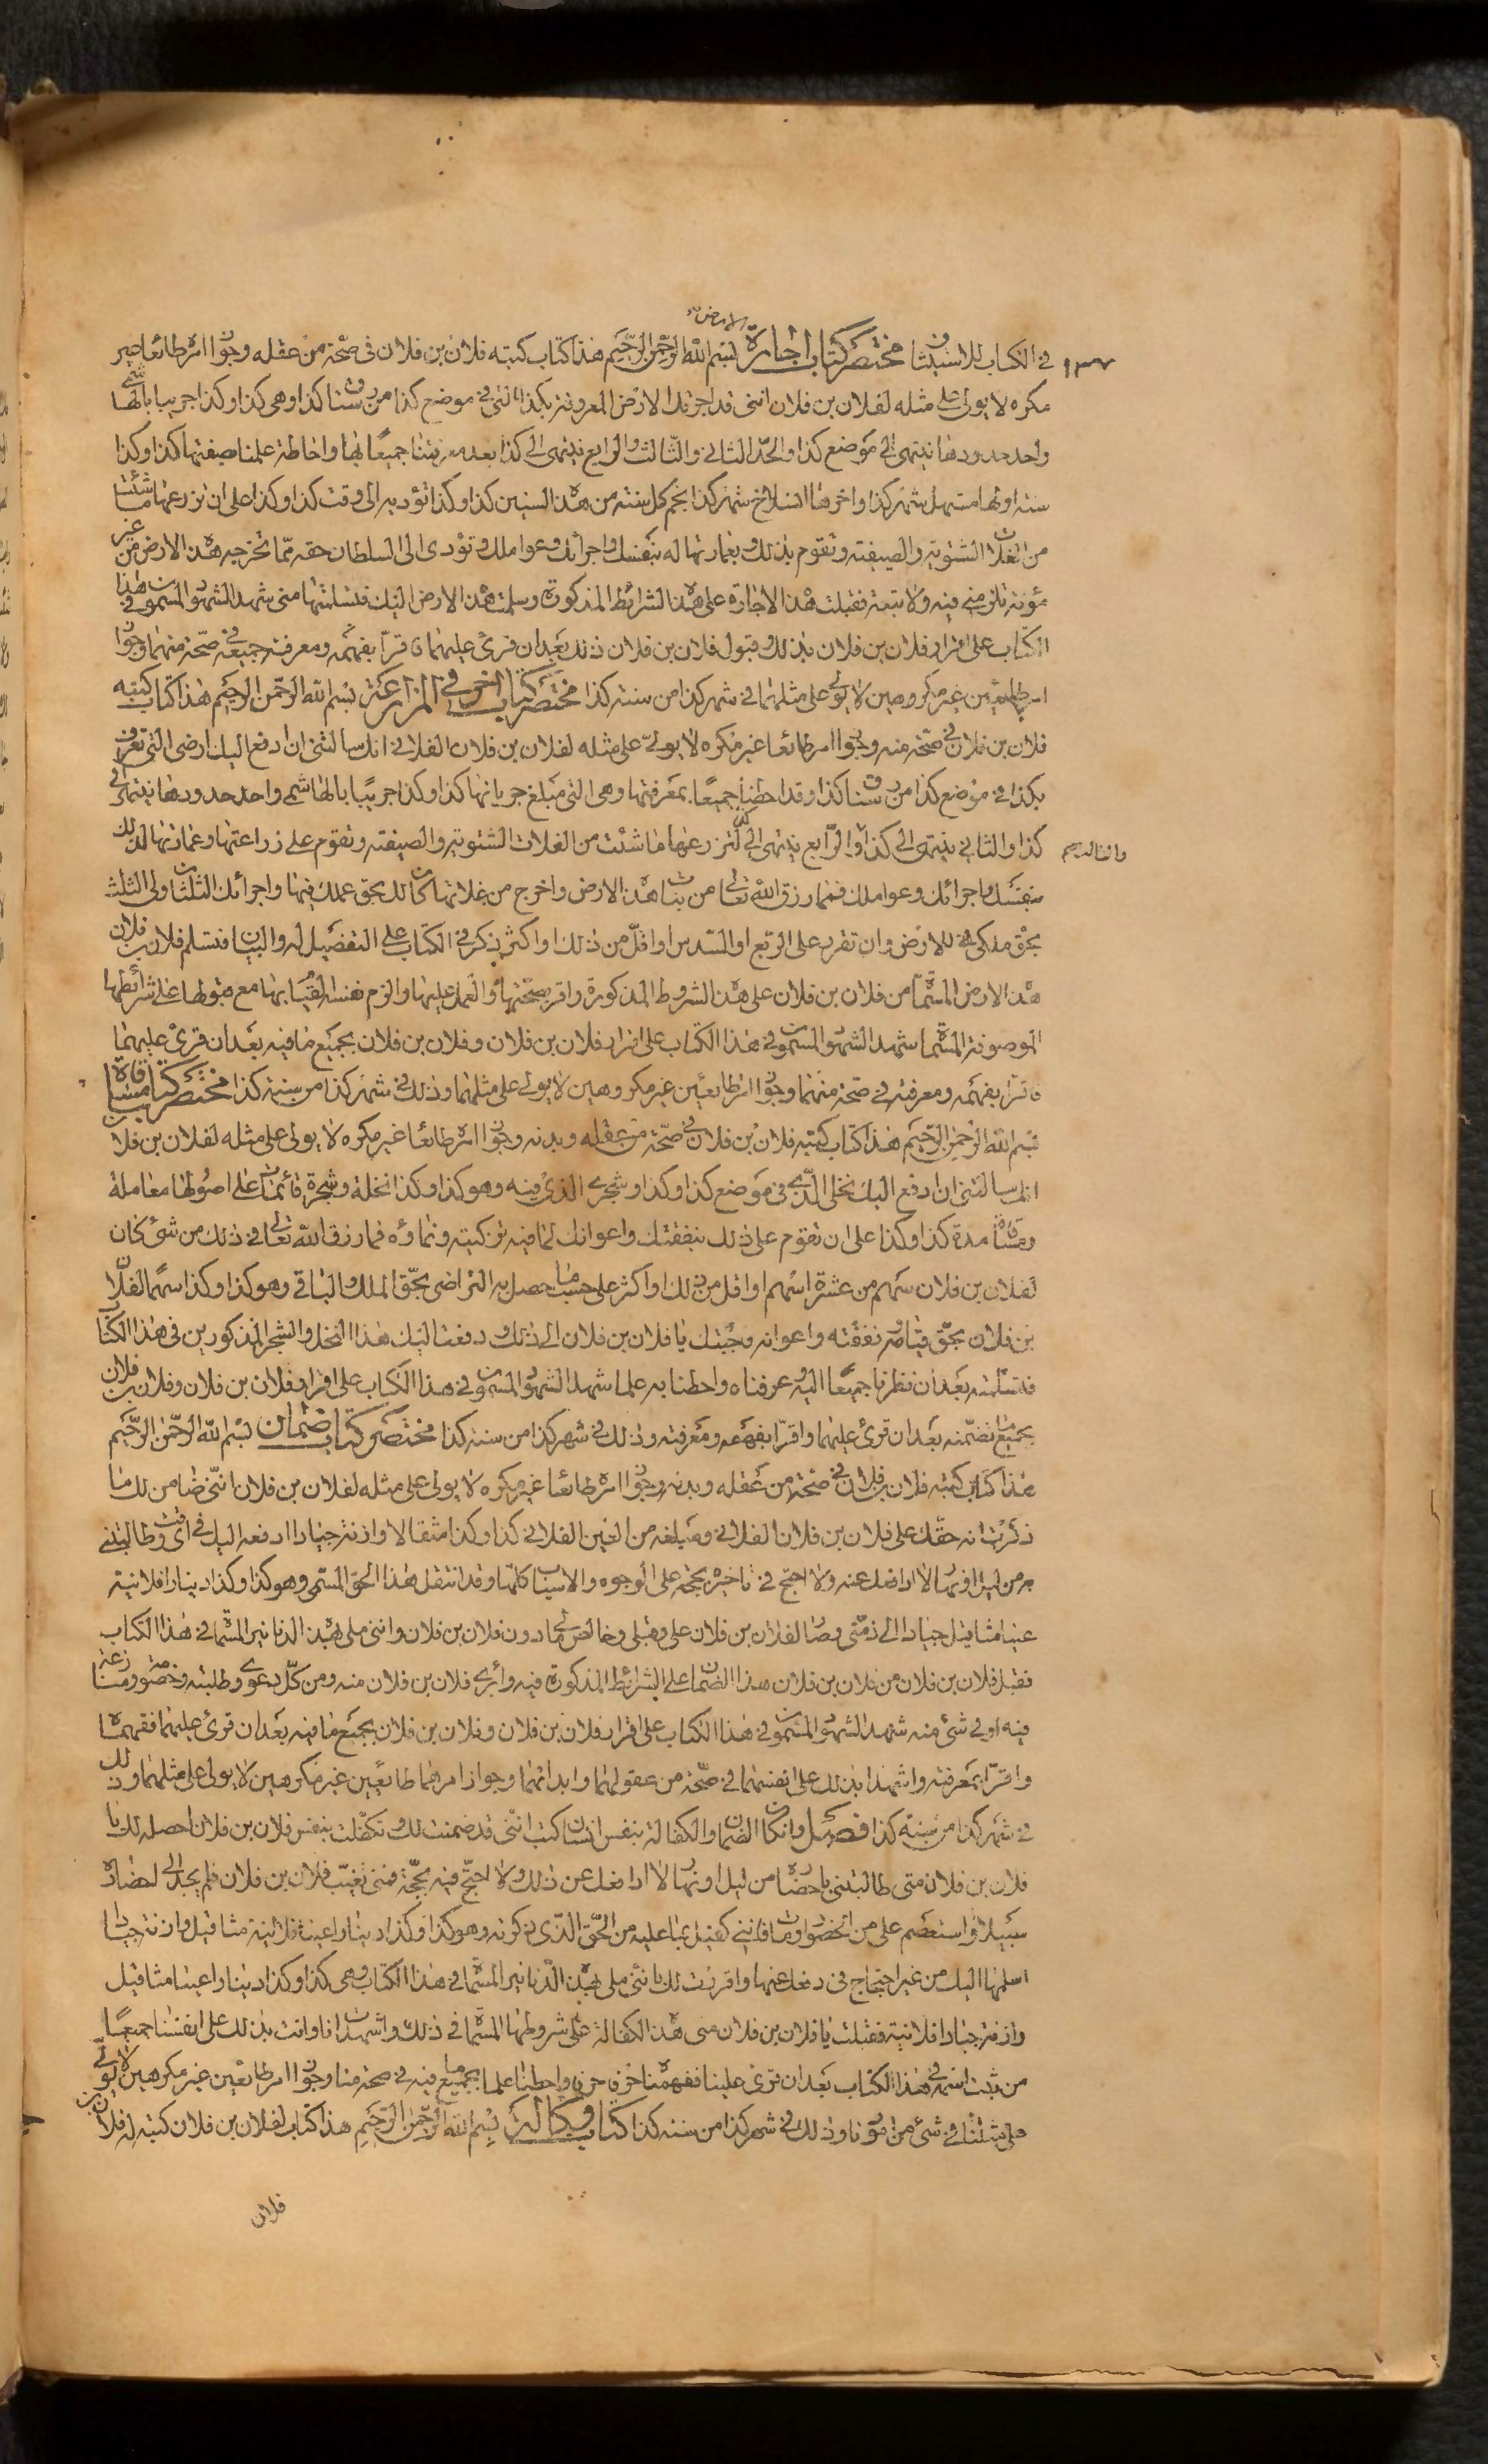 الارض
في الكتاب للاستيثاق مختصر كتاب اجارة بسم الله الرحمن الرحيم هذا كتاب كتبه فلان بن فلان فى صحّة من عقله وجواز امره طائعا غير
مكره لا يولى على مثله لفلان بن فلان اننى قد اجرتك الارض المعروفة بكذا التى فى موضع كذا من رستاق كذا وهى كذا وكذا جريبا بالهاشمى
واحد حدودها ينتهى الى موضع كذا والحدّ الثانى والثالث والرابع ينتهى الى كذا بعد معرفتنا جميعًا بها واحاطة علمنا بصفتها كذا وكذا
سنة اولها مستهل شهر كذا واخرها انسلاخ شهر كذا بحكم كل سنة من هذه السنين كذا وكذا تؤديه الى وقت كذا وكذا على ان تزرعها ما شئت
من الغلات الشتوية والصيفية وتقوم بذلك وبعمارتها له بنفسك واجرائك وعواملك وتؤدى الى السلطان حقه ممّا تخرجه هذه الارض من غير
مؤنة تلزمنى فيه ولا تبعة فقبلت هذه الاجارة على هذه الشرائط المذكورة وسلمت هذه الارض اليك فتسلمتها منى شهد الشهود المسمون فى هذا
الكتاب على اقرار فلان بن فلان بذلك وقبول فلان بن فلان ذلك بعد ان قرئ عليهما فاقرّا بفهمه ومعرفة جميعه فى صحّة منهما وجواز
امر طايعين غير مكروهين لا يولى على مثلهما فى شهر كذا من سنة كذا مختصر كتاب اخر فى المزارعة بسم الله الرحمن الرحيم هذا كتاب كتبه
فلان بن فلان فى صحّة منه وجواز امر طائعا غير مكره لا يولىّ على مثله لفلان بن فلان الفلانى انك سالتنى ان ادفع اليك ارضى التى تعرف
بكذا فى موضع كذا من رستاق كذا وقد احطنا جميعًا بمعرفتها وهى التى مبلغ جربانها كذا وكذا جريبًا بالهاشمى واحد حدودها ينتهى الى
كذا والثانى ينتهى الى كذا والرّابع ينتهى الى كذا لتزرعها ما شئت من الغلات الشتوية والصيفية وتقوم على زراعتها وعمارتها لذلك
والثالث
بنفسك واجرائك وعواملك فمهما رزق الله تعالى من نبات هذه الارض واخرج من غلاتها كان لك بحق عملك فيها واجرائك الثلثان ولى الثلث
بحق ملكى للارض وان تقرر على الربع او السدس او اقلّ من ذلك او اكثر يذكر فى الكتاب على التفضيل له والبيان فتسلم فلان بن فلان
هذه الارض المسمّاة من فلان بن فلان على هذه الشروط المذكورة واقر بصحّتها والعمل عليها والزم نفسه القيام بها مع ضبوطها على شرائطها
الموصوفة المسمّاة شهد الشهود المسمون فى هذا الكتاب على اقرار فلان بن فلان وفلان بن فلان بجميع ما فيه بعد ان قرئ عليهما
فاقرّا بفهمه ومعرفته فى صحّة منهما وجواز امر طايعين غير مكروهين لا يولى على مثلهما وذلك فى شهر كذا من سنة كذا مختصر كتاب مساقاة
بسم الله الرحمن الرحيم هذا كتاب كتبه فلان بن فلان فى صحّة من عقله وبدنه وجواز امره طائعا غير مكره لا يولى على مثله لفلان بن فلان
انك سالتنى ان ادفع اليك نخلى الذى فى موضع كذا وكذا وشجرى الذى فيه وهو كذا وكذا نخلة وشجرة قائمات على اصولها معاملة
ومساقاة مدة كذا وكذا على ان تقوم على ذلك بنفقتك واعوانك لما فيه تزكيته ونماؤه فما رزق الله تعالى فى ذلك من شئ كان
لفلان بن فلان سهم من عشرة اسهم او اقل من ذلك او اكثر على حسب ما حصل به التراضى بحقّ الملك والباقى وهو كذا وكذا سهما لفلان
بن فلان بحقّ قيامه نفقته واعوانه وجبتك يا فلان بن فلان الى ذلك ودفعت اليك هذا النخل والشجر المذكورين فى هذا الكتاب
فتسلّمته بعد ان نظرنا جميعًا اليه وعرفناه واحطنا به علما شهد الشهود المسمون فى هذا الكتاب على اقرار فلان بن فلان وفلان بن فلان
بجميع ما تضمّنه بعد ان قرئ عليهما واقرّا بفهمه ومعرفته وذلك فى شهر كذا من سنة كذا مختصر كتاب ضمان بسم الله الرحمن الرحيم
هذا كتاب كتبه فلان بن فلان فى صحّة من عقله وبدنه وجواز امره طائعا غير مكره لا يولى على مثله لفلان بن فلان انّنى ضامن لك ما
ذكرت انه حقّك على فلان بن فلان الفلانى ومبلغه من العين الفلانى كذا وكذا مثقالا وازنة جيادا ادفعه اليك فى اى وقت طالبتنى
به من ليل او نهار لا ادافعك عنه ولا احتج فى تاخيره بحجة على الوجوه والاسباب كلها وقد انتقل هذا الحق المسمى وهو كذا وكذا دينارا فلانية
عينا مثاقيل جيادا الى ذمّتى وصار لفلان بن فلان على وقبلى وخالص مالى دون فلان بن فلان واننى ملى بهذه الدنانير المسماة فى هذا الكتاب
فقبل فلان بن فلان من فلان بن فلان هذا الضمان على الشرائط المذكورة فيه وأبرى فلان بن فلان منه ومن كلّ دعوى وطلبته وخصومة ومنازعة
فيه او فى شئ منه شهد الشهود المسمون فى هذا الكتاب على اقرار فلان بن فلان وفلان بن فلان بجميع ما فيه بعد ان قرئ عليهما ففهماه
واقرّا بمعرفته واشهدا بذلك على انفسهما فى صحّة من عقولهما وابدانهما وجواز امرهما طائعين غير مكرهين لا يولى على مثلهما وذلك
فى شهر كذا من سنة كذا فصل وان كان الضمان والكفالة بنفس انسان كتب انّنى قد ضمنت لك وتكفّلت بنفس فلان بن فلان احصله لك يا
فلان بن فلان متى طالبتنى باحضاره من ليل او نهار لا ادافعك عن ذلك ولا احتجّ فيه بحجّة فمتى تغيّب فلان بن فلان فلم يجد الى احضاره
سبيلا واستعصم على من الحضور او مات فاننى كفيل بما عليه من الحقّ الذى ذكرته وهو كذا وكذا دينارا عينا فلانية مثاقيل وازنة جيادا
اسلمها اليك من غير احتجاج فى دفعك عنها واقررت لك باننى ملى بهذه الدّنانير المسمّاة فى هذا الكتاب وهى كذا وكذا دينارا عينا مثاقيل
وازنة جيادا فلانية فقبلت يا فلان بن فلان منى هذه الكفالة على شروطها المسمّاة فى ذلك واشهدت انا وانت بذلك على انفسنا جميعًا
من ثبت اسمه فى هذا الكتاب بعد ان قرئ علينا ففهمناه حرفا حرفا واحطنا علما بجميع ما فيه فى صحة منا وجواز امر طايعين غير مكرهين لا يولى
على مثلنا فى شئ من امورنا وذلك فى شهر كذا من سنة كذا كتاب وكالة بسم الله الرحمن الرحيم هذا كتاب لفلان بن فلان كتبه له فلان بن
فلان